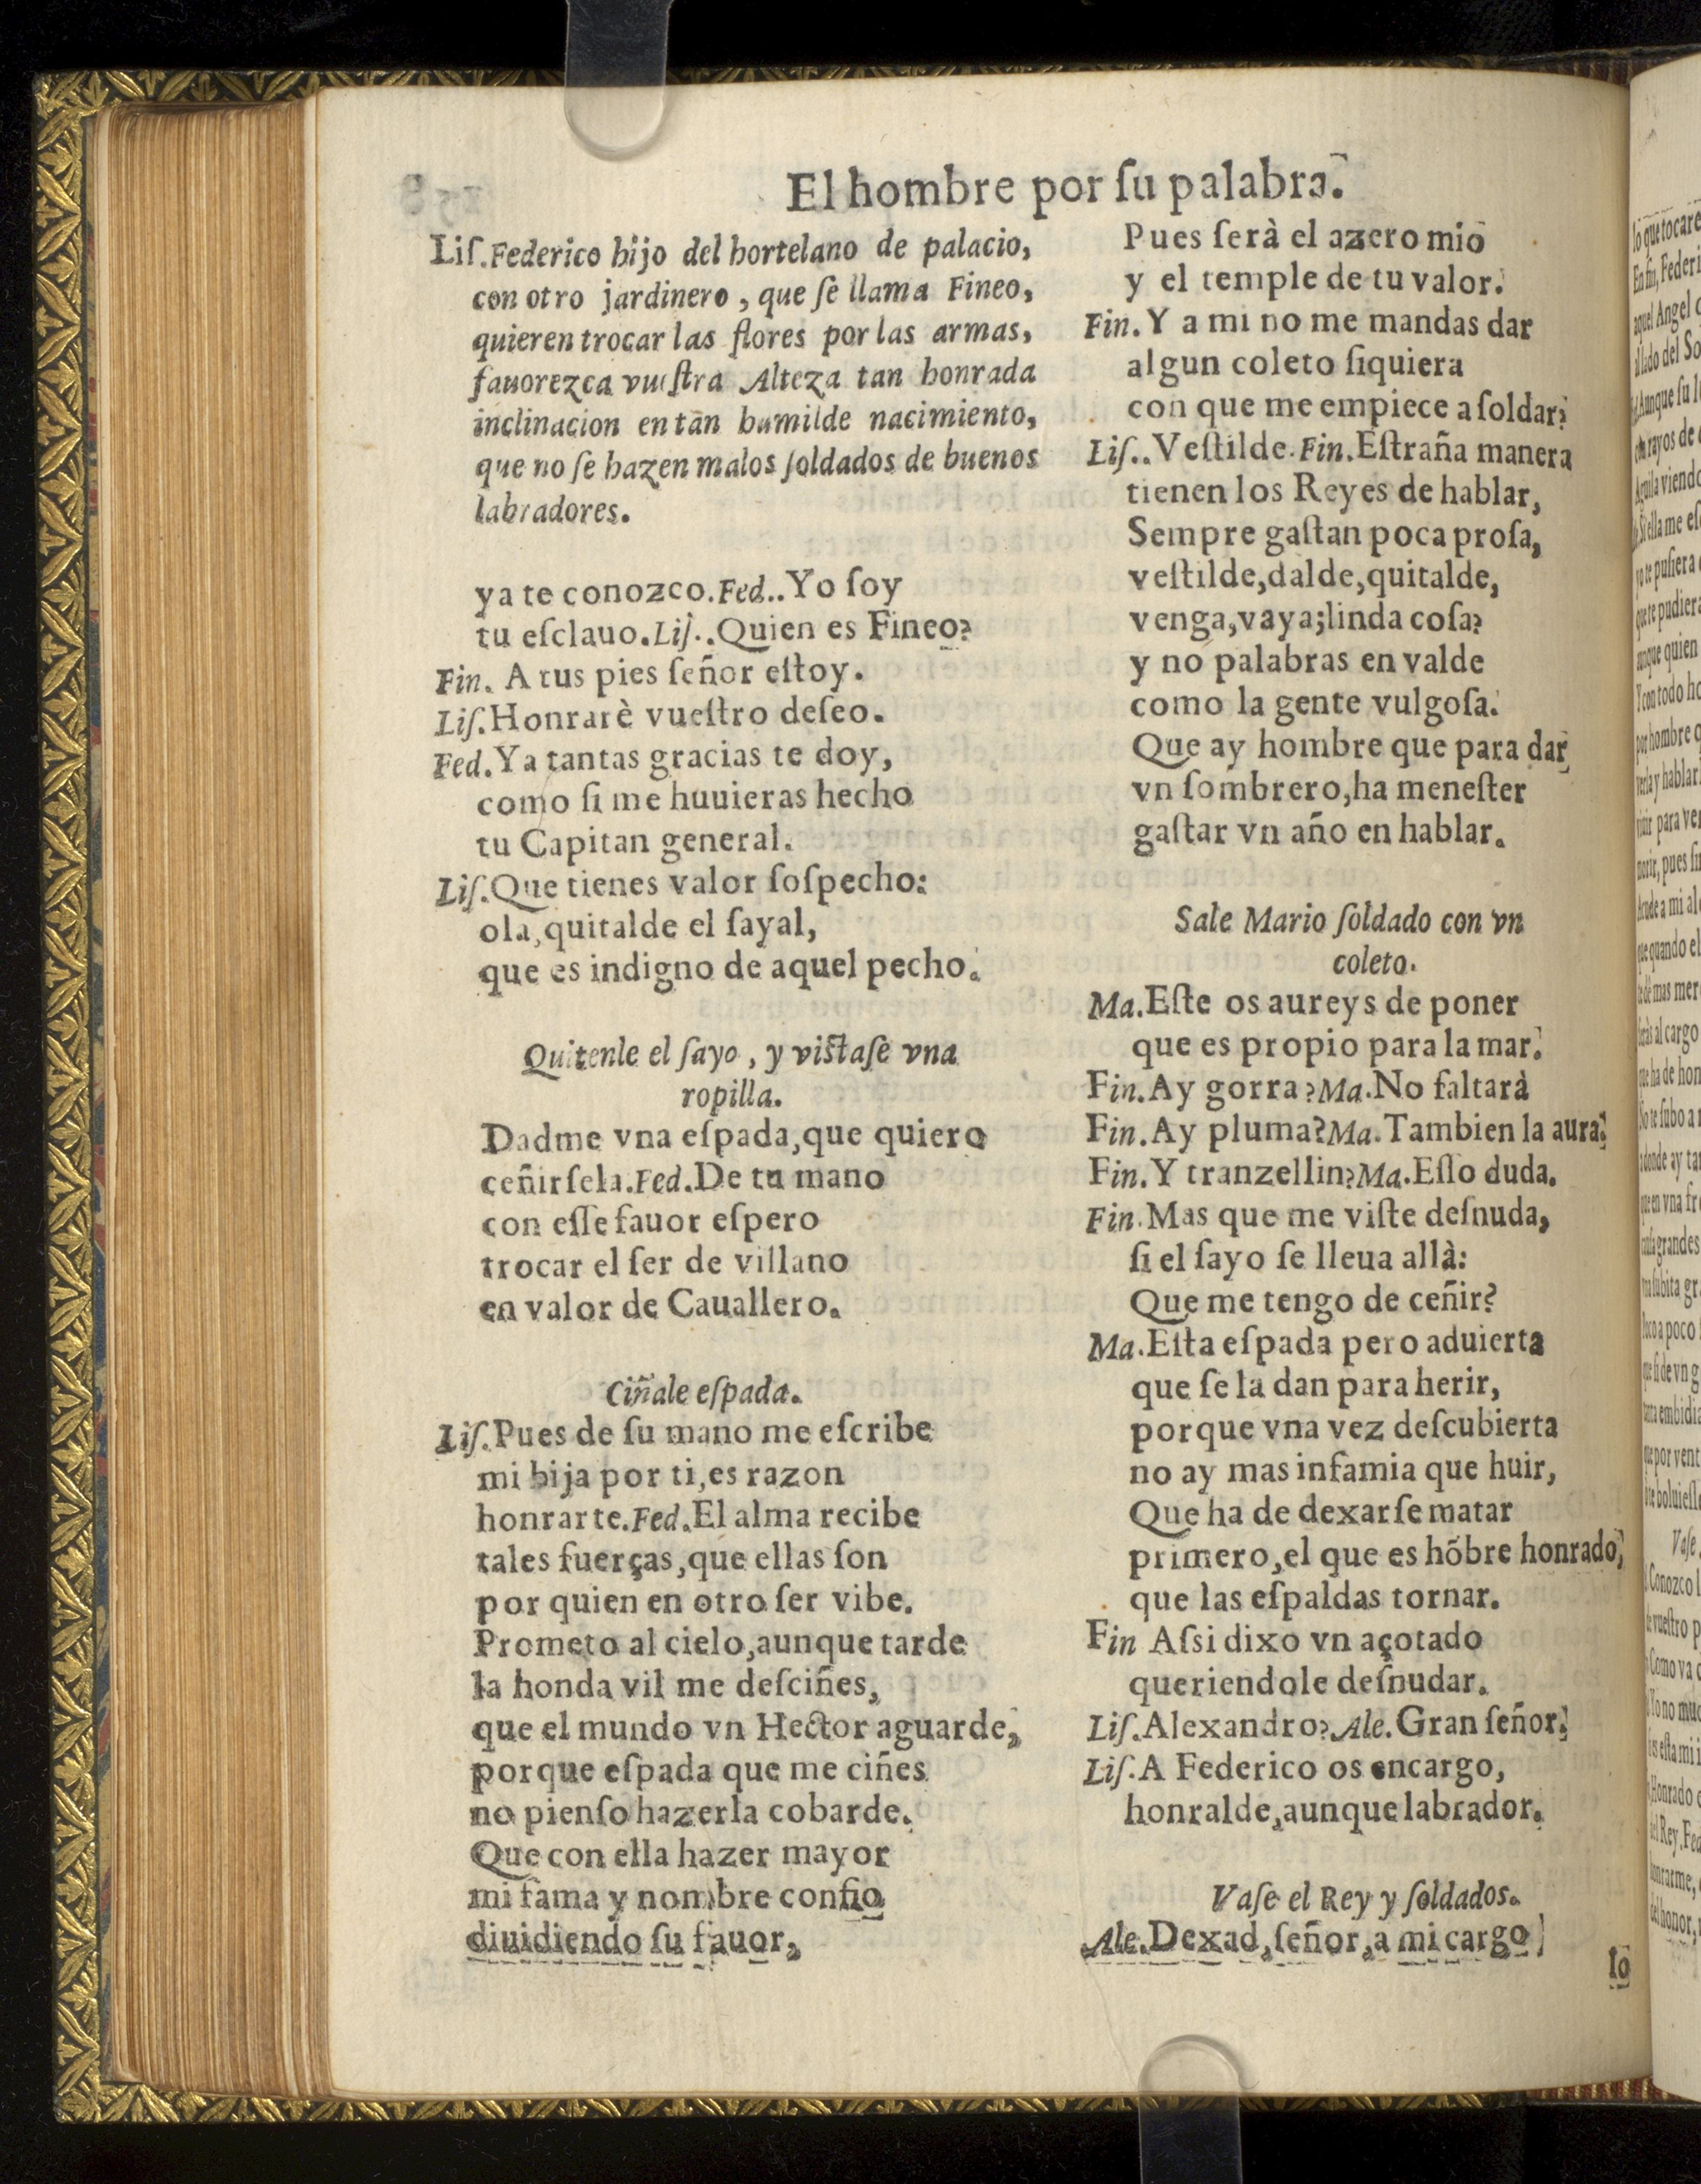 El hombre por ſu palabra.
Liſ.Federico hijo del hortelano de palacio,
con otro jardinero, que ſe llama Fineo,
quieren trocar las flores por las armas,
fauorezca vueſtra Alteza tan honrada
inclinacion en tan humilde nacimiento,
que no ſe hazen malos ſoldados de buenos
labradores.
ya te conozco.Fed..Yo ſoy
tu eſclauo.Liſ..Quien es Fineo?
Fin. A tus pies ſeñor eſtoy.
Liſ.Honrarè vueſtro deſeo.
Fed.Ya tantas gracias te doy,
como ſi me huuieras hecho
tu Capitan general.
Liſ.Que tienes valor ſoſpecho:
ola,quitalde el ſayal,
que es indigno de aquel pecho.
Quitenle el ſayo, y viſtaſe vna
ropilla.
Dadme vna eſpada,que quiero
ceñirſela.Fed.De tu mano
con eſſe fauor eſpero
trocar el ſer de villano
en valor de Cauallero.
Ciñale eſpada.
Liſ.Pues de ſu mano me eſcribe
mi hija por ti,es razon
honrarte.Fed.El alma recibe
tales fuerças,que ellas ſon
por quien en otro ſer vibe.
Prometo al cielo,aunque tarde
la honda vil me deſciñes,
que el mundo vn Hector aguarde,
porque eſpada que me ciñes
no pienſo hazerla cobarde.
Que con ella hazer mayor
mi fama y nombre confio
diuidiendo ſu fauor,
Pues ſerà el azero mio
y el temple de tu valor.
Fin.Y a mi no me mandas dar
algun coleto ſiquiera
con que me empiece a ſoldar?
Liſ..Veſtilde.Fin.Eſtraña manera
tienen los Reyes de hablar,
Sempre gaſtan poca proſa,
veſtilde,dalde,quitalde,
venga,vaya;linda coſa?
y no palabras en valde
como la gente vulgoſa.
Que ay hombre que para dar
vn ſombrero,ha meneſter
gaſtar vn año en hablar.
Sale Mario ſoldado con vn
coleto.
Ma.Eſte os aureys de poner
que es propio para la mar.
Fin.Ay gorra?Ma.No faltarà
Fin.Ay pluma?Ma.Tambien la aura.
Fin.Y tranzellin?Ma.Eſſo duda.
Fin.Mas que me viſte deſnuda,
ſi el ſayo ſe lleua allà:
Que me tengo de ceñir?
Ma.Eſta eſpada pero aduierta
que ſe la dan para herir,
porque vna vez deſcubierta
no ay mas infamia que huir,
Que ha de dexarſe matar
primero,el que es hõbre honrado,
que las eſpaldas tornar.
Fin Aſsi dixo vn açotado
queriendole deſnudar.
Liſ.Alexandro?.Ale.Gran ſeñor.
Liſ.A Federico os encargo,
honralde,aunque labrador.
Vaſe el Rey y ſoldados.
Ale.Dexad,ſeñor,a mi cargo
lo